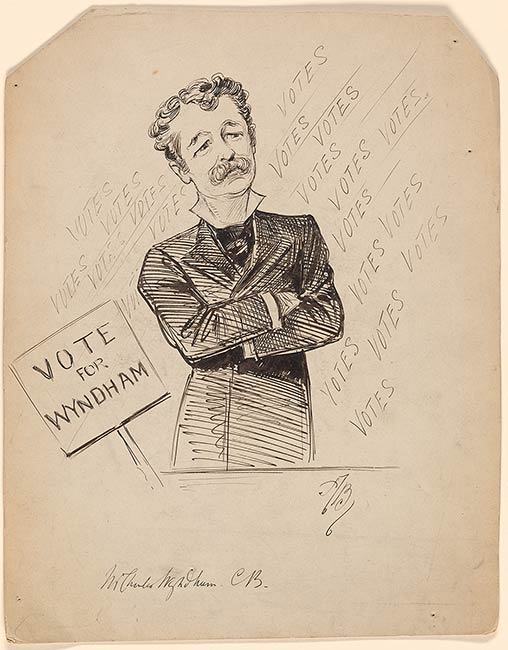 VOTES
VOTES
VOTES
VOTES
VOTES
VOTES
VOTE
VO
VOTES
VOTES
VOTES
VOTES
VOTES
VOTES
VOTES
VOTES
VOTES
VOTES
VOTES
VOTES
VOTES
VOTE
FOR
WYNDHAM
Mr Charles Wyndham. C B.